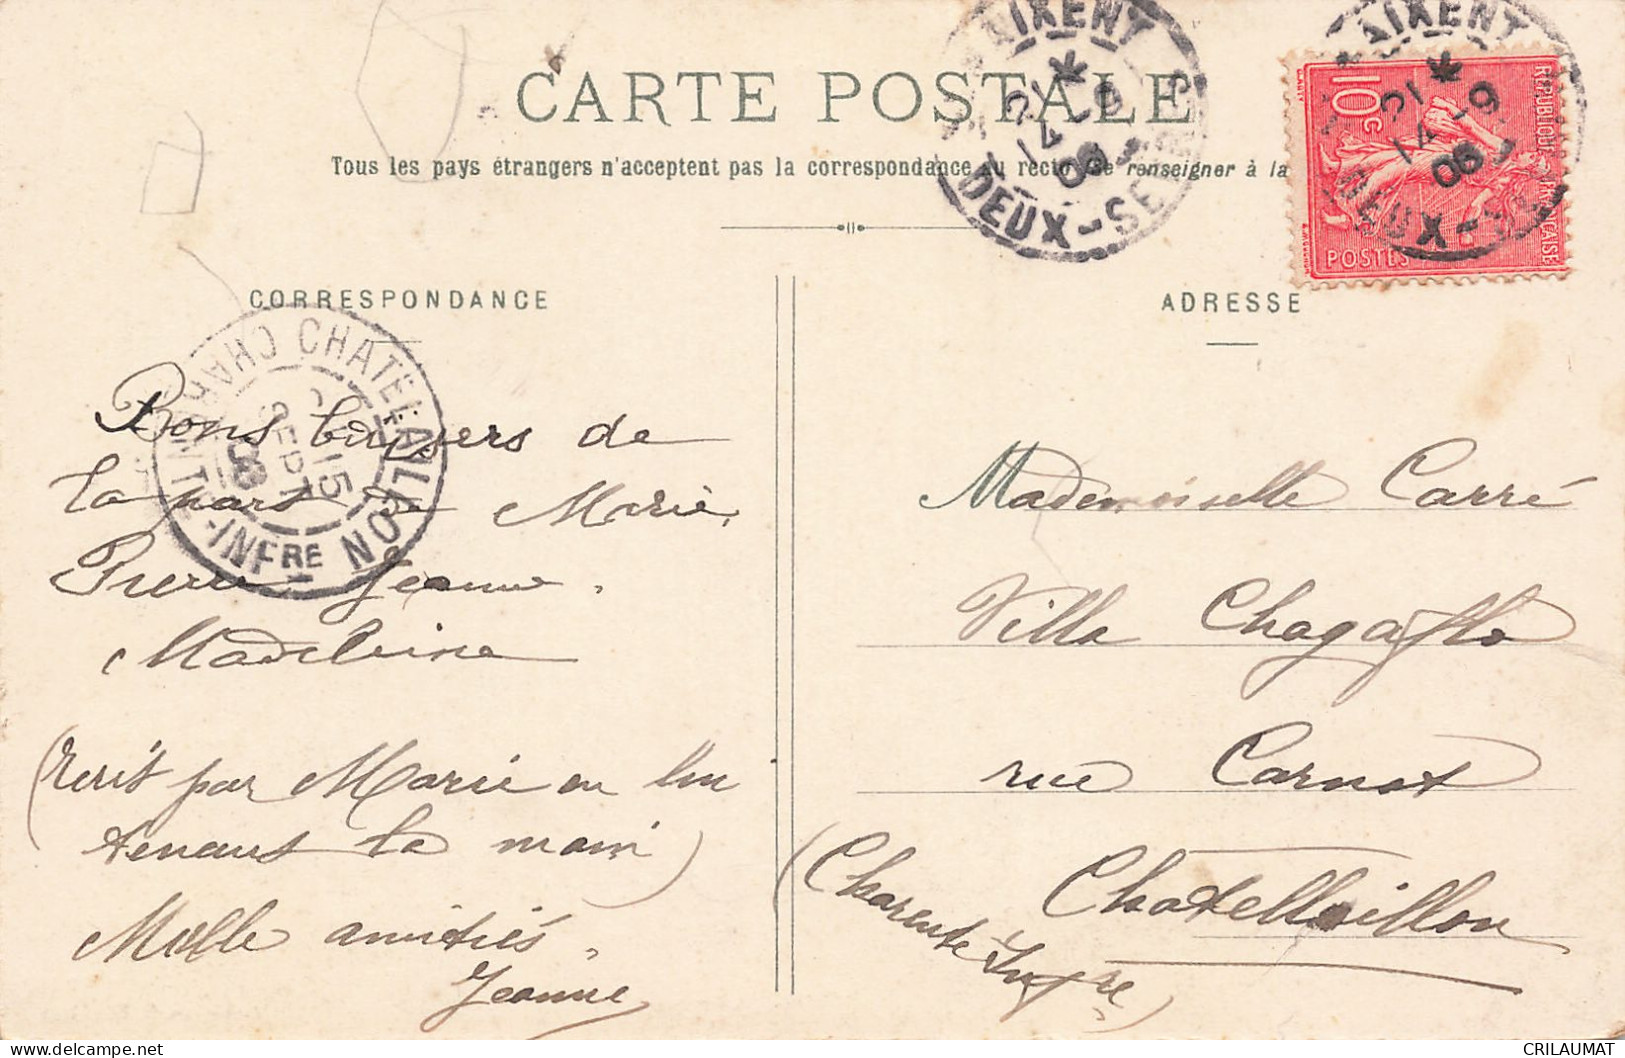 CARTE POSTALE
Tous les pays étrangers n'acceptent pas la correspondance au recto (Se renseigner à la
CORRESPONDANCE
ADRESSE
Bons baisers de
la part de Marie,
Pierre Jeanne,
Madeleine
(écrit par Marie en lui
tenant la main)
Mille amitiés,
Jeanne
Mademoiselle Carré
Villa
rue Carnot
Chatellaillon
(Charente Infre)
AIXENT
14 - 9
06
DEUX-SÈVRES
RÉPUBLIQUE FRANÇAISE
10c
POSTES
AIXENT
14 - 9
06
DEUX-
CHATELAILLON
15
SEPT
CHARENTE-INFRE
CRILAUMAT